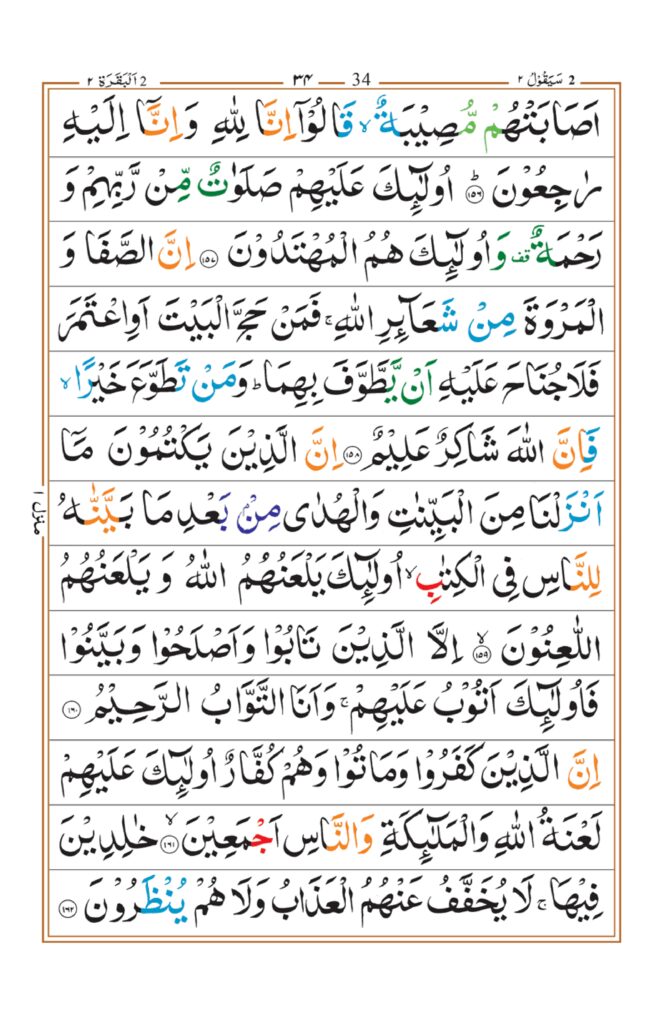 2 سَيَقُوْلُ ٢ 34 ٣۴ 2 اَلْبَقَرَة ٢
اَصَابَتْهُمْ مُّصِيْبَةٌ ۙ قَالُوْٓا اِنَّا لِلّٰهِ وَاِنَّآ اِلَيْهِ
رٰجِعُوْنَ ؕ ﴿۱۵۶﴾ اُولٰٓئِكَ عَلَيْهِمْ صَلَوٰتٌ مِّنْ رَّبِّهِمْ وَ
رَحْمَةٌ ۟ قف وَاُولٰٓئِكَ هُمُ الْمُهْتَدُوْنَ ﴿۱۵۷﴾ اِنَّ الصَّفَا وَ
الْمَرْوَةَ مِنْ شَعَآئِرِ اللّٰهِ ۚ فَمَنْ حَجَّ الْبَيْتَ اَوِاعْتَمَرَ
فَلَاجُنَاحَ عَلَيْهِ اَنْ يَّطَّوَّفَ بِهِمَا ؕ وَمَنْ تَطَوَّعَ خَيْرًا ۙ
فَاِنَّ اللّٰهَ شَاكِرٌ عَلِيْمٌ ﴿۱۵۸﴾ اِنَّ الَّذِيْنَ يَكْتُمُوْنَ مَآ
اَنْزَلْنَا مِنَ الْبَيِّنٰتِ وَالْهُدٰى مِنْۢ بَعْدِ مَا بَيَّنّٰهُ
لِلنَّاسِ فِى الْكِتٰبِ ۙ اُولٰٓئِكَ يَلْعَنُهُمُ اللّٰهُ وَ يَلْعَنُهُمُ
اللّٰعِنُوْنَ ۙ ﴿۱۵۹﴾ اِلَّا الَّذِيْنَ تَابُوْا وَاَصْلَحُوْا وَبَيَّنُوْا
فَاُولٰٓئِكَ اَتُوْبُ عَلَيْهِمْ ۚ وَاَنَا التَّوَّابُ الرَّحِيْمُ ﴿۱۶۰﴾
اِنَّ الَّذِيْنَ كَفَرُوْا وَمَاتُوْا وَهُمْ كُفَّارٌ اُولٰٓئِكَ عَلَيْهِمْ
لَعْنَةُ اللّٰهِ وَالْمَلٰٓئِكَةِ وَالنَّاسِ اَجْمَعِيْنَ ۙ ﴿۱۶۱﴾ خٰلِدِيْنَ
فِيْهَا ۚ لَا يُخَفَّفُ عَنْهُمُ الْعَذَابُ وَلَا هُمْ يُنْظَرُوْنَ ﴿۱۶۲﴾
منزل ١